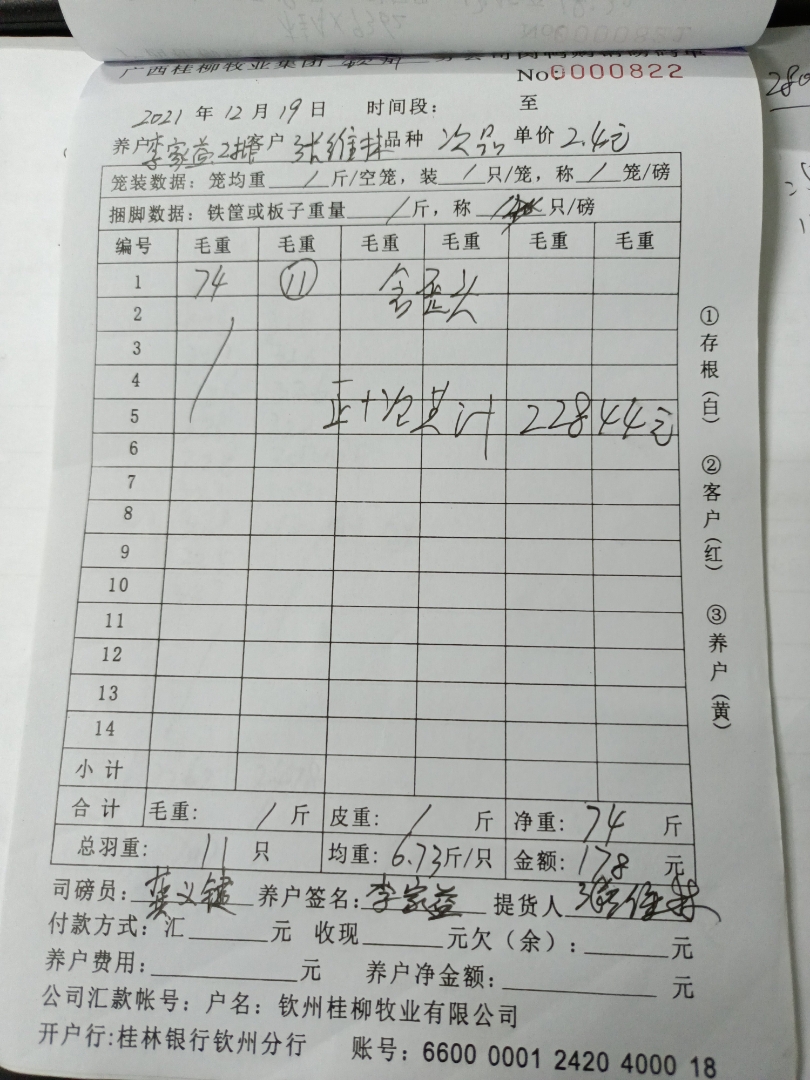 广西桂柳牧业集团 钦州 分公司肉鸭购销磅码单
No: 0000822
2021 年 12 月 19 日 时间段: 至
养户 李家益2批 客户 张维林 品种 次品 单价 2.4元
笼装数据: 笼均重 / 斤/空笼, 装 / 只/笼, 称 / 笼/磅
捆脚数据: 铁筐或板子重量 / 斤, 称 只/磅
编号 毛重 毛重 毛重 毛重 毛重 毛重
1 74 ⑪ 含歪头
2
3
4
5 正+次共计 22844元
6
7
8
9
10
11
12
13
14
小计
合计 毛重: / 斤 皮重: / 斤 净重: 74 斤
总羽重: 11 只 均重: 6.73斤/只 金额: 178 元
司磅员: 龚义键 养户签名: 李家益 提货人 张维林
付款方式: 汇 元 收现 元欠(余): 元
养户费用: 元 养户净金额: 元
公司汇款帐号: 户名: 钦州桂柳牧业有限公司
开户行:桂林银行钦州分行 账号: 6600 0001 2420 4000 18
①存根(白) ②客户(红) ③养户(黄)